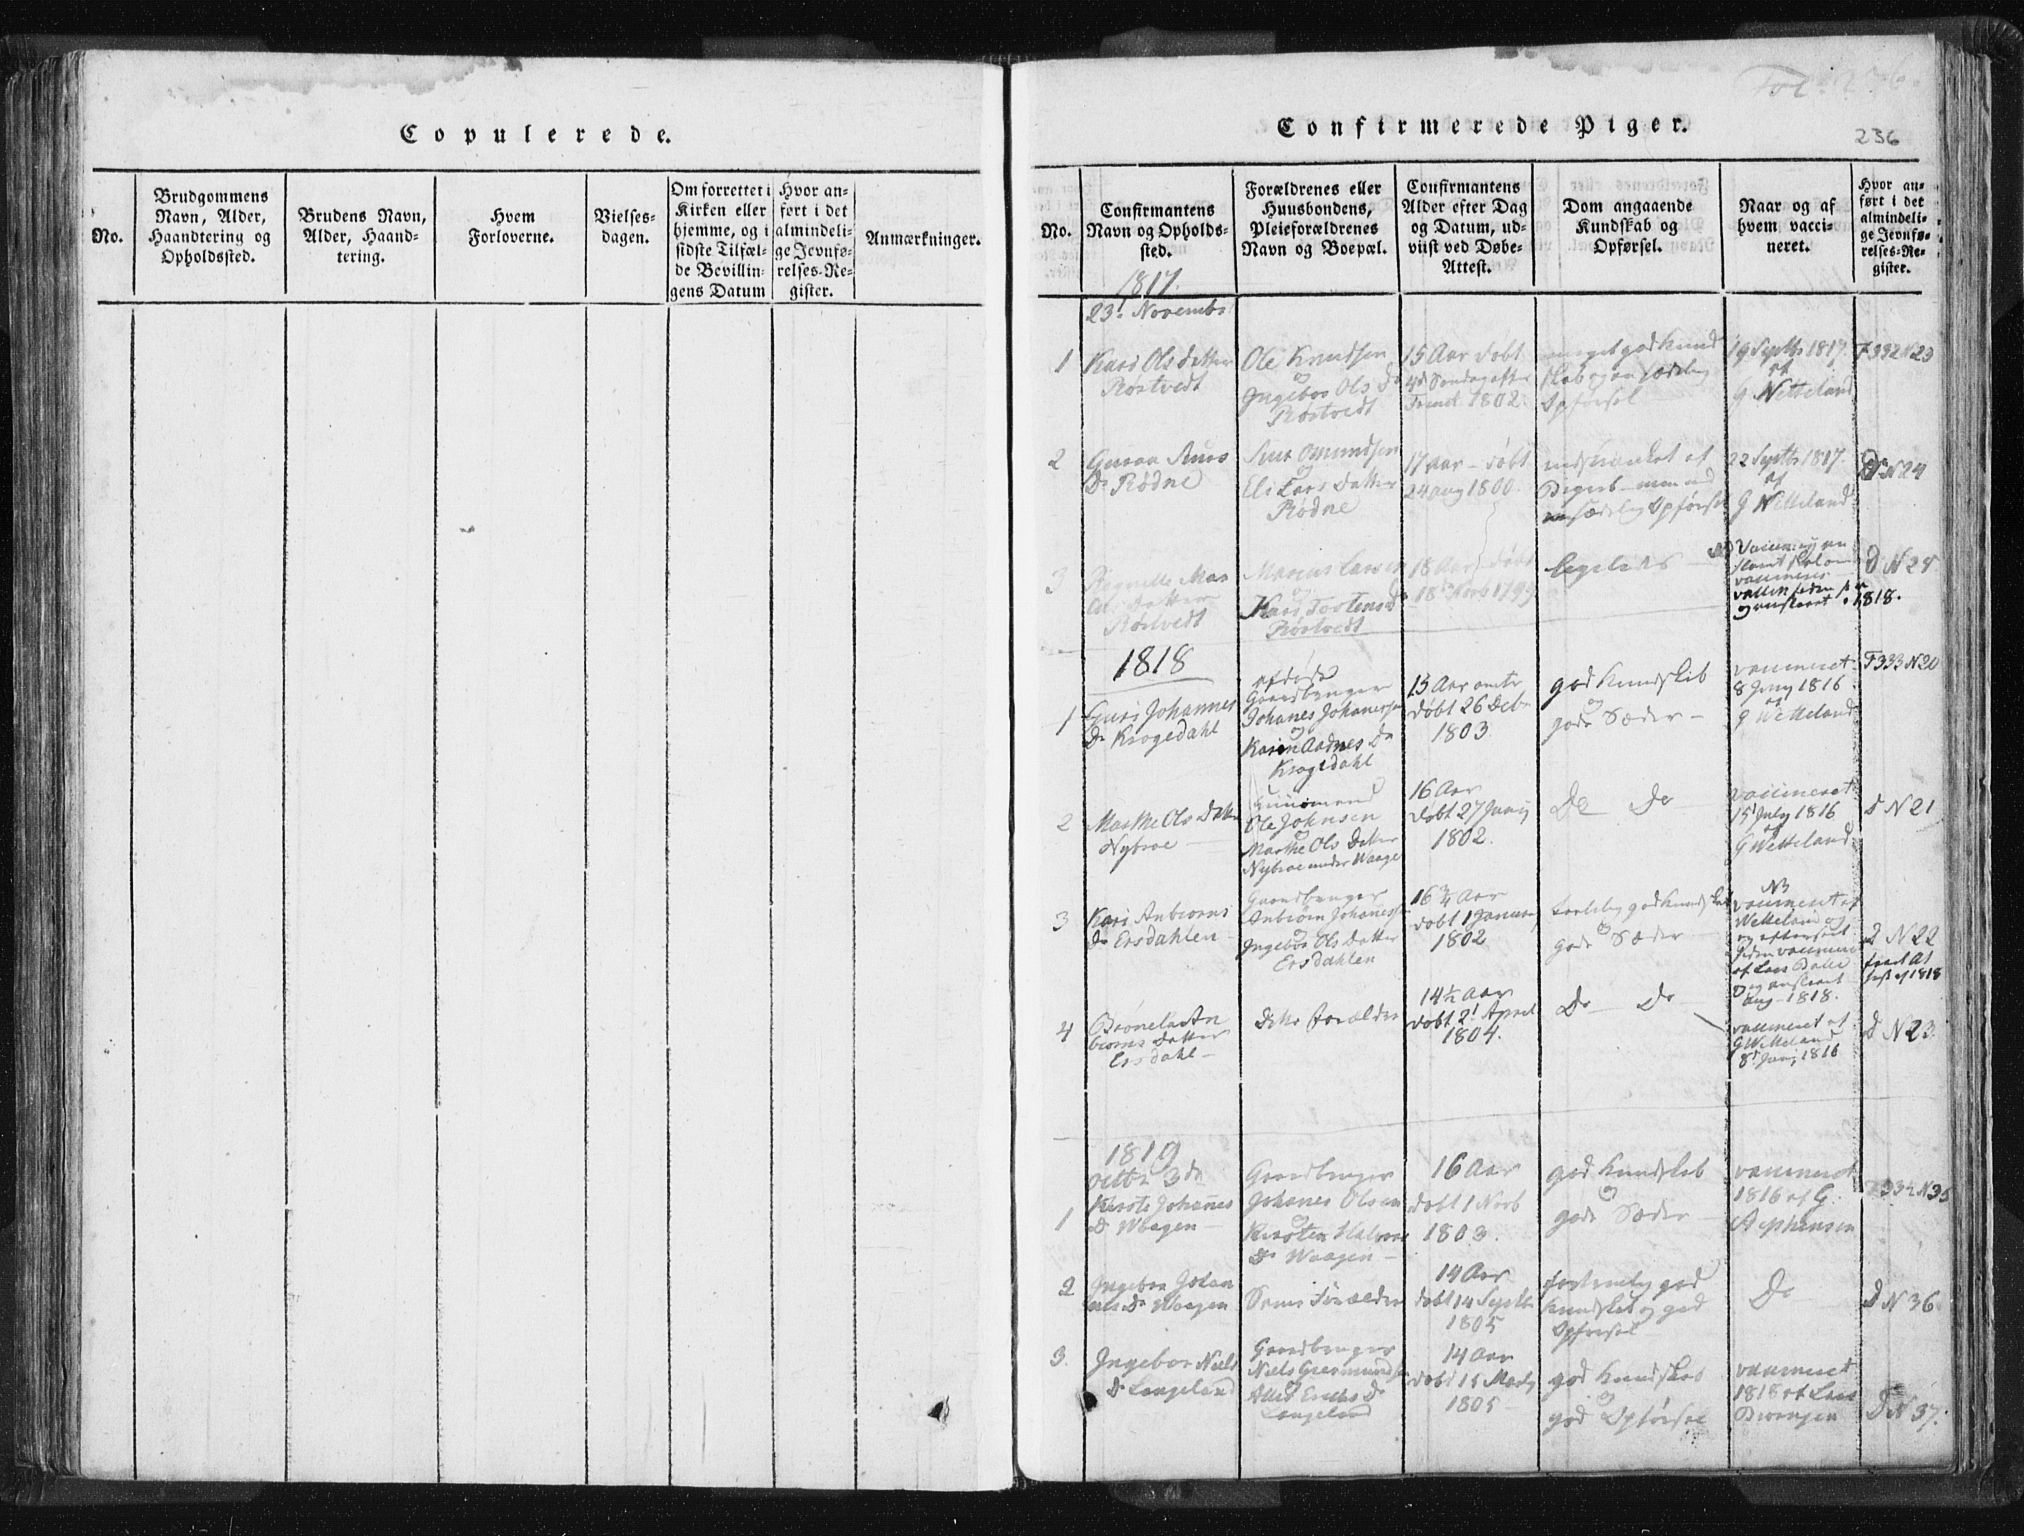 Copulerede.
No.
Brudgommens
Navn, Alder,
Haandtering og
Opholdssted.
Brudens Navn,
Alder, Haand-
tering.
Hvem
Forloverne.
Vielses-
dagen.
Om forrettet i
Kirken eller
hjemme, og i
sidste Tilfæl-
de Bevillin-
gens Datum
Hvor an-
ført i det
almindeli-
ge Jevnfø-
relses-Re-
gister.
Anmærkninger.
Confirmerede Piger.
236
No.
Confirmantens
Navn og Opholds-
sted.
Forældrenes eller
Huusbondens,
Pleieforældrenes
Navn og Boepæl.
Confirmantens
Alder efter Dag
og Datum, ud-
viist ved Døbe-
Attest.
Dom angaaende
Kundskab og
Opførsel.
Naar og af
hvem vacci-
neret.
Hvor an-
ført i det
almindeli-
ge Jevnfø-
relses-Re-
gister.
1817.
23 Novembr
1
Kari Ols Datter
Røstvedt
Ole Knudsen
og
Ingebor Ols Dr
Røstvedt
15 Aar døbt
4d Søndag efter
Trinit 1802.
meget god Kund
skab og sædelig
Opførsel
19 Septbr 1817.
af
G Wetteland
F332 N23
2
Dr Rødne
Omundsen
og
Eli Lars Datter
Rødne
17 Aar - døbt
24 Aug 1800.
sædelig Opførsel
22 Septbr 1817.
af
G Wetteland
D N 24
3
Datter
Røstvedt
Marcus Larsen
og
Kari Tostens D
Røstvedt
18 Aar døbt
1799
ligeledes
D N 25
1818.
1818
1
Guri Johannes
Dr Krogedahl
Gaardbruger
Johanes Johanesen
og
Karen Aadnes Dr
Krogedahl
15 Aar
døbt 26 Decbr
1803.
god Kundskab
og
gode Sæder -
vaccineret
8 Juny 1816
af
G Wetteland
F333 N20
2
Marthe Ols Datter
Nybroe
Huusmand
Ole Johnsen
og
Marthe Ols Datter
Nybroe under Waage
16 Aar
døbt 27 Juny
1802.
Do Do
vaccineret
15 July 1816
af
G Wetteland
D N 21
3
Kari Anbiorns
Dr Ersdahlen
Gaardbruger
Anbiörn Johanessen
og
Ingebor Ols Datter
Ersdahlen
16 3/4 Aar
døbt 1 Januar
1802
god Kundskab
og
gode Sæder
NB
vaccineret af
Wetteland og
af Lars
Aug 1818.
D N 22
4
Datter
Ersdahl -
Forælder
14 1/2 Aar
døbt 2 April
1804.
Do Do
vaccineret af
G Wetteland
8 Juny 1816
D N 23
1819
Octbr 3de
1
Johannes
Dr Waagen -
Gaardbruger
Johanes Olsen
og
Kirsten Halvors
Dr Waagen -
16 Aar
døbt 1 Novb
1803.
god Kundskab
og
gode Sæder -
vaccineret
1816 af G.
Stephensen
F334 N35
2
Ingebor Johan
nes Dr Waagen
Samme Forælder
14 Aar
døbt 14 Septbr
1805
god
Kundskab og god
Opførsel
Do
D N 36
3.
Ingebor Niels
Dr Langeland
Gaardbruger
Niels Giermunds
og
Dr
Langeland
14 Aar
døbt 15 Marty
1805
god Kundskab
og
god Opførsel
vaccineret
1818 af Lars
D N 37.